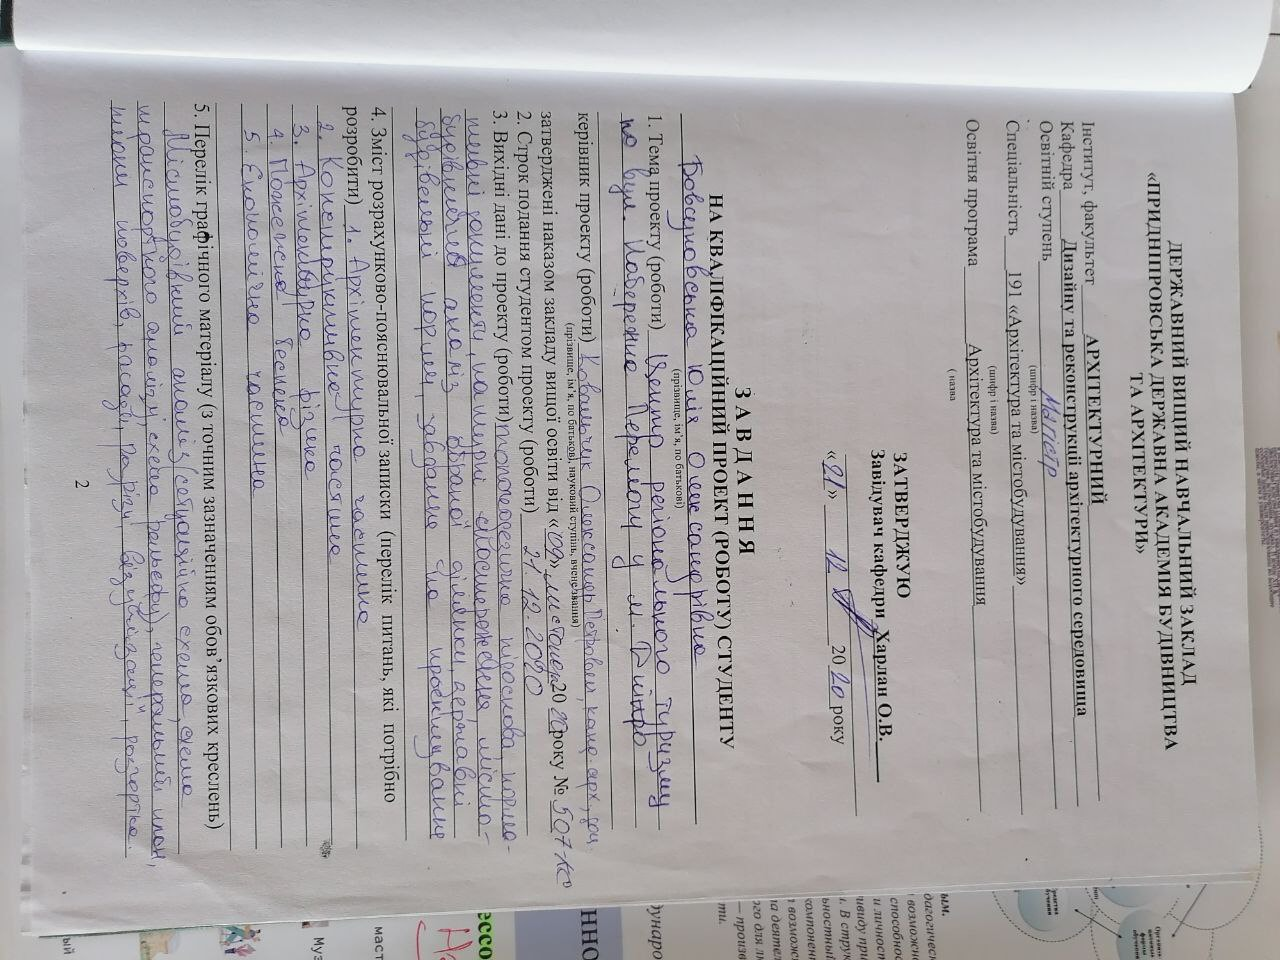 ДЕРЖАВНИЙ ВИЩИЙ НАВЧАЛЬНИЙ ЗАКЛАД
«ПРИДНІПРОВСЬКА ДЕРЖАВНА АКАДЕМІЯ БУДІВНИЦТВА
ТА АРХІТЕКТУРИ»
Інститут, факультет АРХІТЕКТУРНИЙ
Кафедра Дизайну та реконструкції архітектурного середовища
Освітній ступень Магістр
(шифр і назва)
Спеціальність 191 «Архітектура та містобудування»
(шифр і назва)
Освітня програма Архітектура та містобудування
( назва
ЗАТВЕРДЖУЮ
Завідувач кафедри Харлан О.В.
«21» 12 20 20 року
З А В Д А Н Н Я
НА КВАЛІФІКАЦІЙНИЙ ПРОЕКТ (РОБОТУ) СТУДЕНТУ
Юлія Олександрівна
(прізвище, ім’я, по батькові)
1. Тема проекту (роботи) Центр регіонального туризму
по вул. Набережна Перемоги у м. Дніпро
керівник проекту (роботи) Ковальчик Олександр Петрович, канд. арх., доц.
(прізвище, ім’я, по батькові, науковий ступінь, вчене звання)
затверджені наказом закладу вищої освіти від «09» листопада 20 20 року № 507-
2. Строк подання студентом проекту (роботи) 21. 12. 2020
3. Вихідні дані до проекту (роботи) топогеодезична
натурні спостереження, містo-
будівельний аналіз обраної ділянки, державні
будівельні норми, завдання на проектування
4. Зміст розрахунково-пояснювальної записки (перелік питань, які потрібно
розробити) 1. Архітектурна частина
2. Конструктивна частина
3. Архітектурна фізика
4. Пожежна безпека
5. Економічна частина
5. Перелік графічного матеріалу (з точним зазначенням обов’язкових креслень)
Містобудівний аналіз (ситуаційна схема, схема
транспортного аналізу, схема рельєфу), генеральний план,
плани поверхів, фасади, розрізи, візуалізації, розгортка.
2